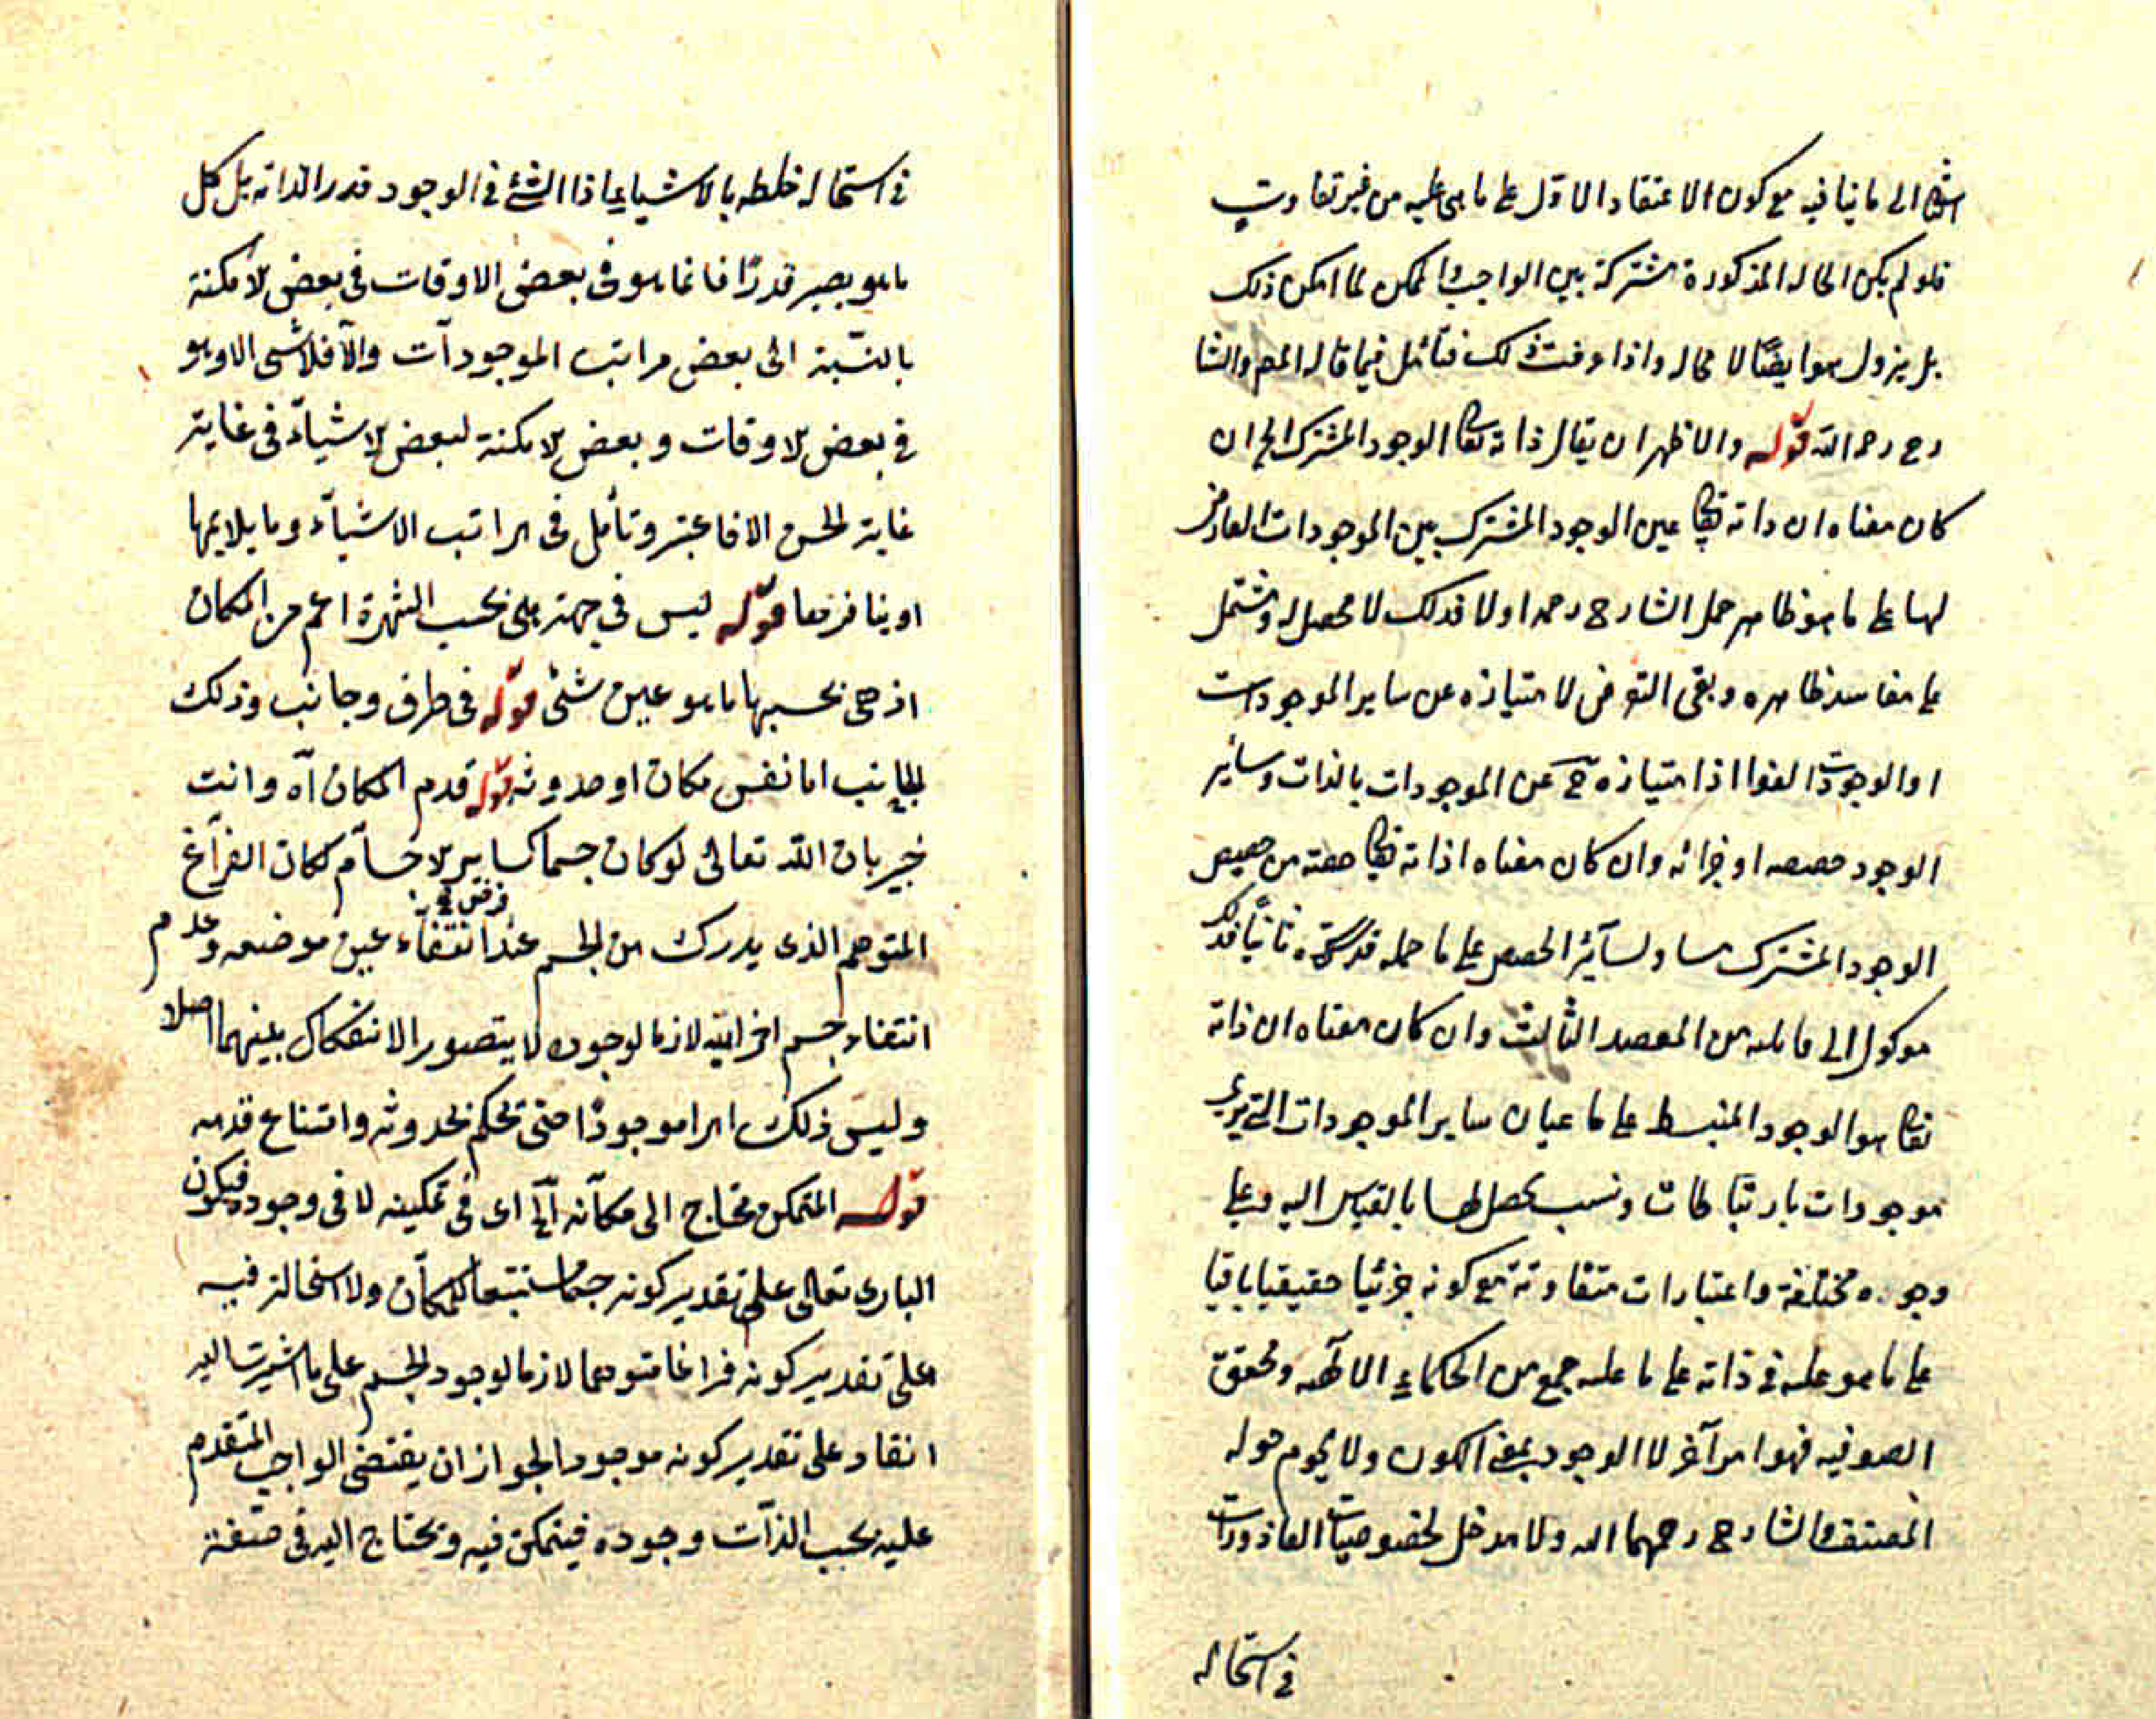 الثانى الى ما ينافيه مع كون الاعتقاد الاول على ما هى عليه من غير تفاوت
فلو لم يكن الحاله المذكورة مشتركة بين الواجب والممكن لما امكن ذلك
بل يزول هو ايضًا لا محاله واذا عرفت ذلك فتأمل فيما قاله المص والشا
رح رحمه الله قوله والاظهر ان يقال ذاته تعالى الوجود المشترك الخ ان
كان معناه ان ذاته تعالى عين الوجود المشترك بين الموجودات العارض
لها على ما هو ظاهر حمل الشارح رحمه اولا فذلك لا محصل له ويشتمل
على مفاسد ظاهره وبقى التعرض لامتيازه عن ساير الموجودات
او الوجودات لغوا اذ امتيازه ح عن الموجودات بالذات وسائر
الوجود حصصه او افراده وان كان معناه ان ذاته تعالى حصته من حصص
الوجود المشترك مساو لسآئر الحصص على ما حمله قدس سره ثانيًا فذلك
موكول الى قائله من المقصد الثالث وان كان معناه ان ذاته
تعالى هو الوجود المنبسط على اعيان ساير الموجودات التى يرى
موجودات بارتباطات ونسب يحصل لها بالقياس اليه وعلى
وجوه مختلفة واعتبارات متفاوتة مع كونه جزئيا حقيقيا باقيا
على ما هو عليه فى ذاته على ما عليه جمع من الحكماء الالهيه ومحقق
الصوفيه فهو امر آخر لا الوجود بمعنى الكون ولا يحوم حوله
المصنف والشارح رحمهما الله ولا مدخل لخصوصيات القاذورات
فى استحاله
فى استحاله خلطه بالاشياء اذا الشئ فى الوجود قدرا لذاته بل كل
ما هو يصير قذرًا فانما هو فى بعض الاوقات فى بعض الامكنة
بالنسبة الى بعض مراتب الموجودآت والا فلا شى الا وهو
فى بعض الاوقات وبعض الامكنة لبعض الاشيآء فى غاية
غاية الحسن الا فاعتبر وتأمل فى مراتب الاشيآء وما يلايمها
او ينافرها قوله ليس فى جهة هى بحسب الشهرة اعم من المكان
اذ هى بحسبها ما هو عين شئى قوله فى طرف وجانب وذلك
الجانب اما نفس مكان او حدوثه قوله قدم المكان آه وانت
خبير بان الله تعالى لو كان جسما كساير الاجسآم لكان الفرآغ
المتوهم الذى يدرك من الجسم عند انتفاء عين موضعه وعدم
فرض فيه
انتفاء جسم اخر اليه لازما لوجوده لا يتصور الانفكاك بينهما اصلا
وليس ذلك امرا موجودًا حتى يحكم بحدوثه وامتناع قدمه
قوله المتمكن محتاج الى مكآنه آلخ اى فى تمكينه لا فى وجوده فيكون
البارى تعالى على تقدير كونه جسما مستتبعا للمكآن ولا استحالة فيه
اعلى تقدير كونه فراغا متوهما لازما لوجود الجسم على ما اشرت اليه
انفا وعلى تقدير كونه موجودا لجواز ان يقتضى الواجب المتقدم
عليه بحسب الذآت وجوده فيتمكن فيه ويحتاج اليه فى صفة